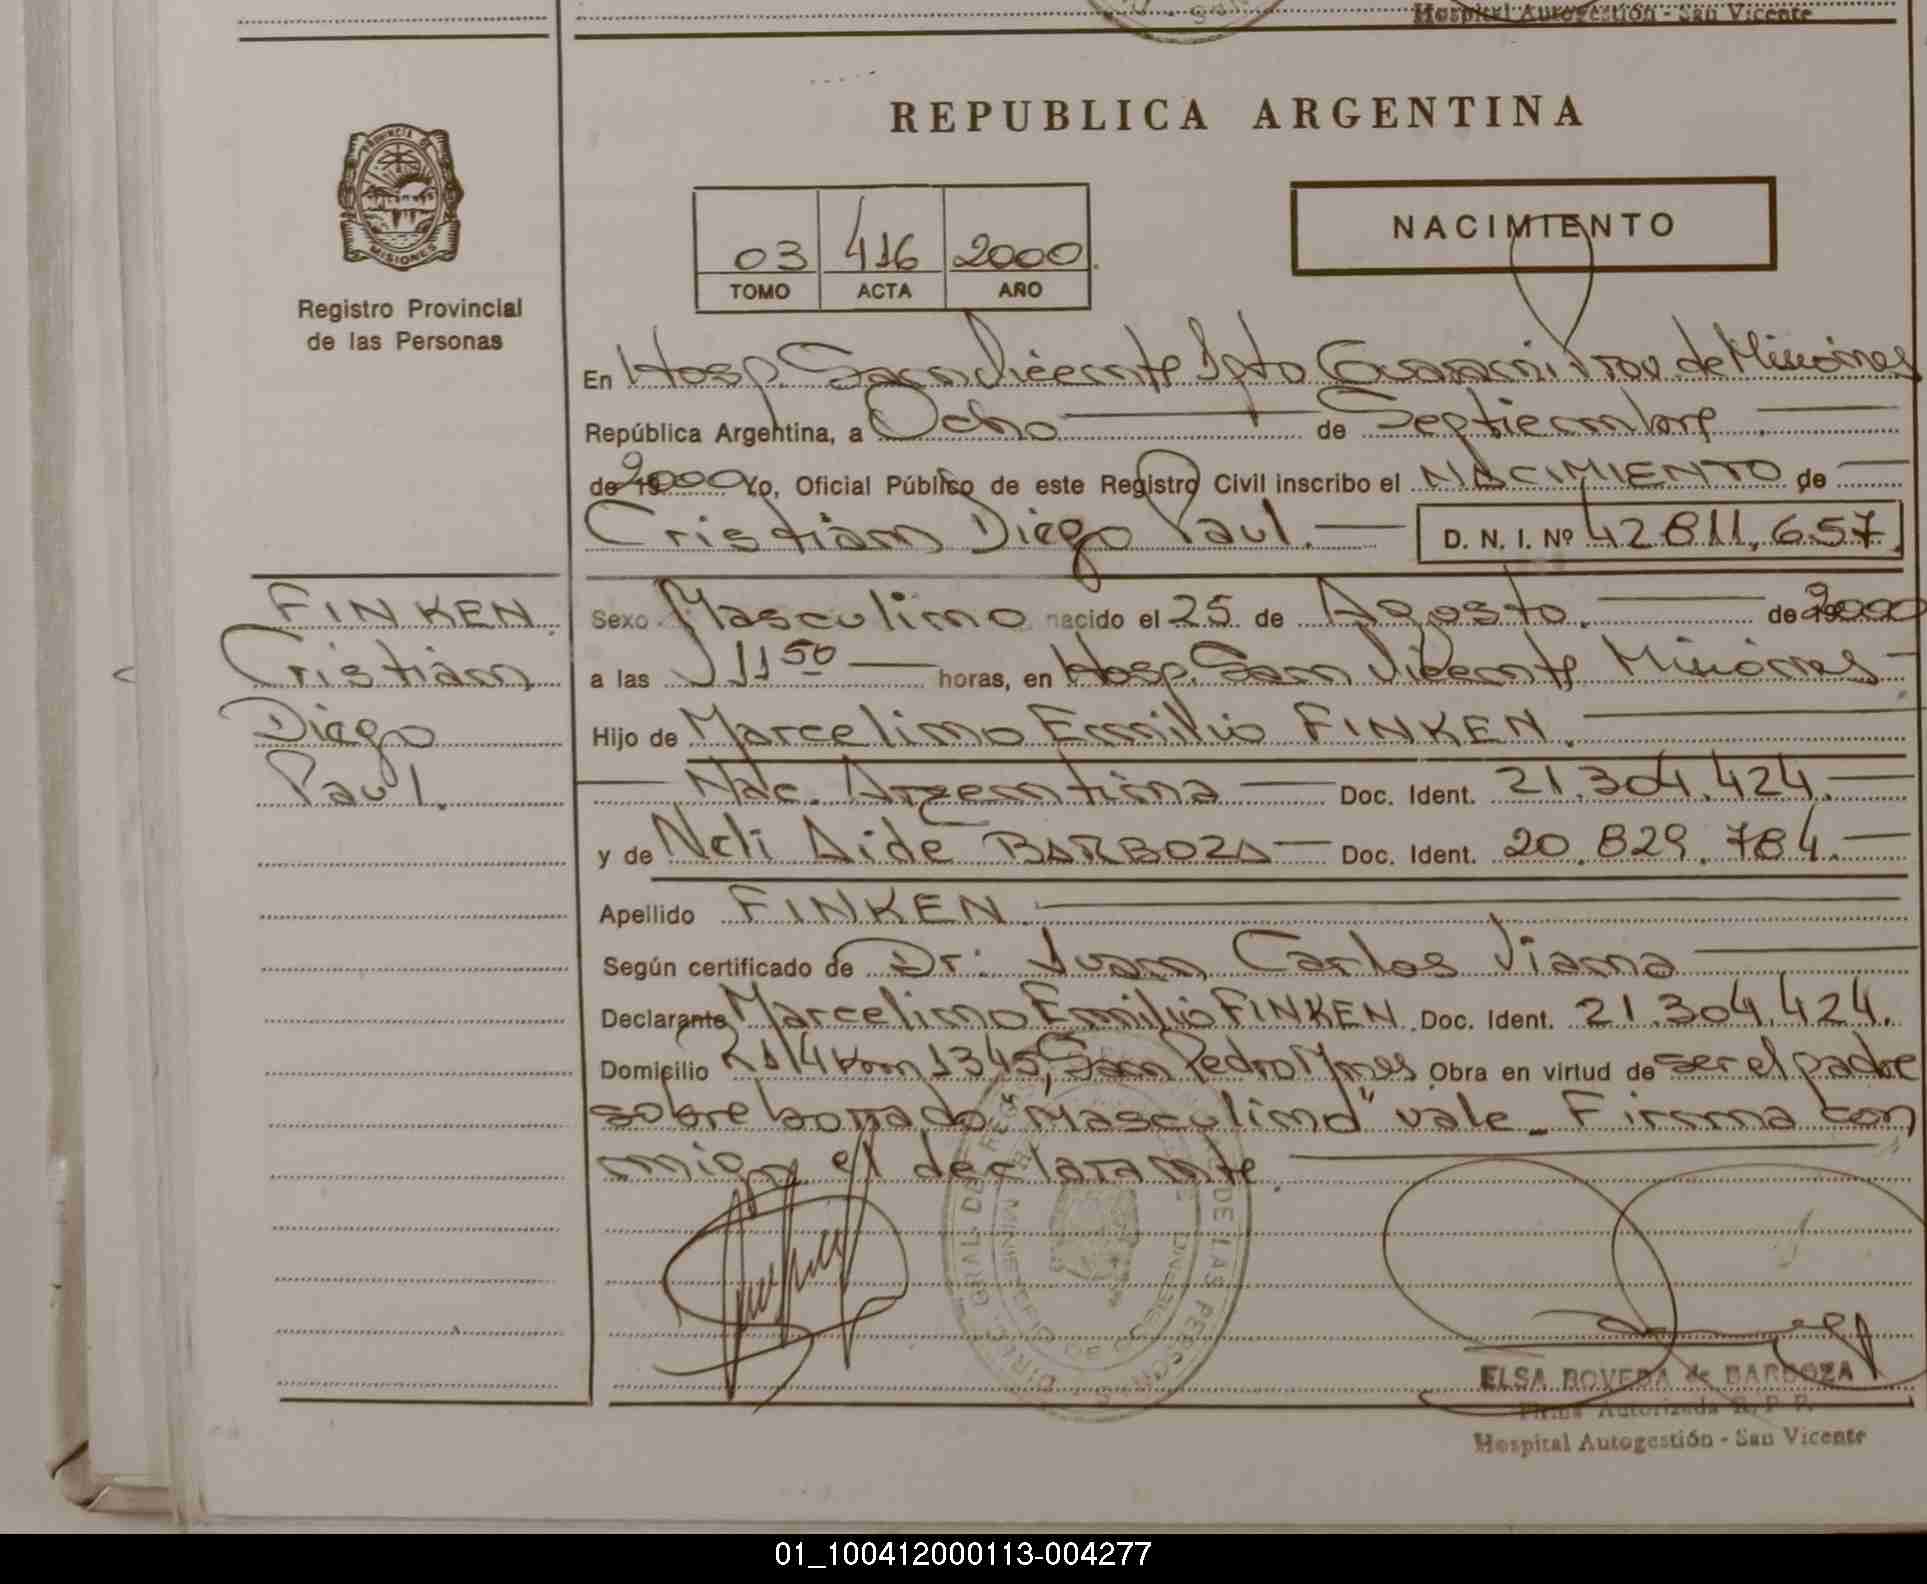 Hospital Autogestión - San Vicente
REPUBLICA ARGENTINA
PROVINCIA DE
MISIONES
Registro Provincial
de las Personas
03 416 2000
TOMO ACTA AÑO
NACIMIENTO
En Hosp. San Vicente Dpto Guaraní Prov. de Misiones
República Argentina, a Ocho de Septiembre
de 2000 Yo, Oficial Público de este Registro Civil inscribo el NACIMIENTO de
Cristian Diego Paul. D. N. I. Nº 42811.657.
FINKEN
Cristian
Diego
Paul.
Sexo Masculino nacido el 25 de Agosto. de 2000
a las 11 50 horas, en Hosp. San Vicente Misiones
Hijo de Marcelino Emilio FINKEN.
Nac. Argentina Doc. Ident. 21.304.424.
y de Neli Aide BARBOZA Doc. Ident. 20.829.784.
Apellido FINKEN.
Según certificado de Dr. Juan Carlos Viana
Declarante Marcelino Emilio FINKEN. Doc. Ident. 21.304.424.
Domicilio R14 Km 1345, San Pedro Mnes Obra en virtud de ser el padre
sobre borrado "Masculino" vale_ Firma con
migo el declarante.
ELSA ROVEDA de BARBOZA
Firma Autorizada R. P. P.
Hospital Autogestión - San Vicente
01_100412000113-004277